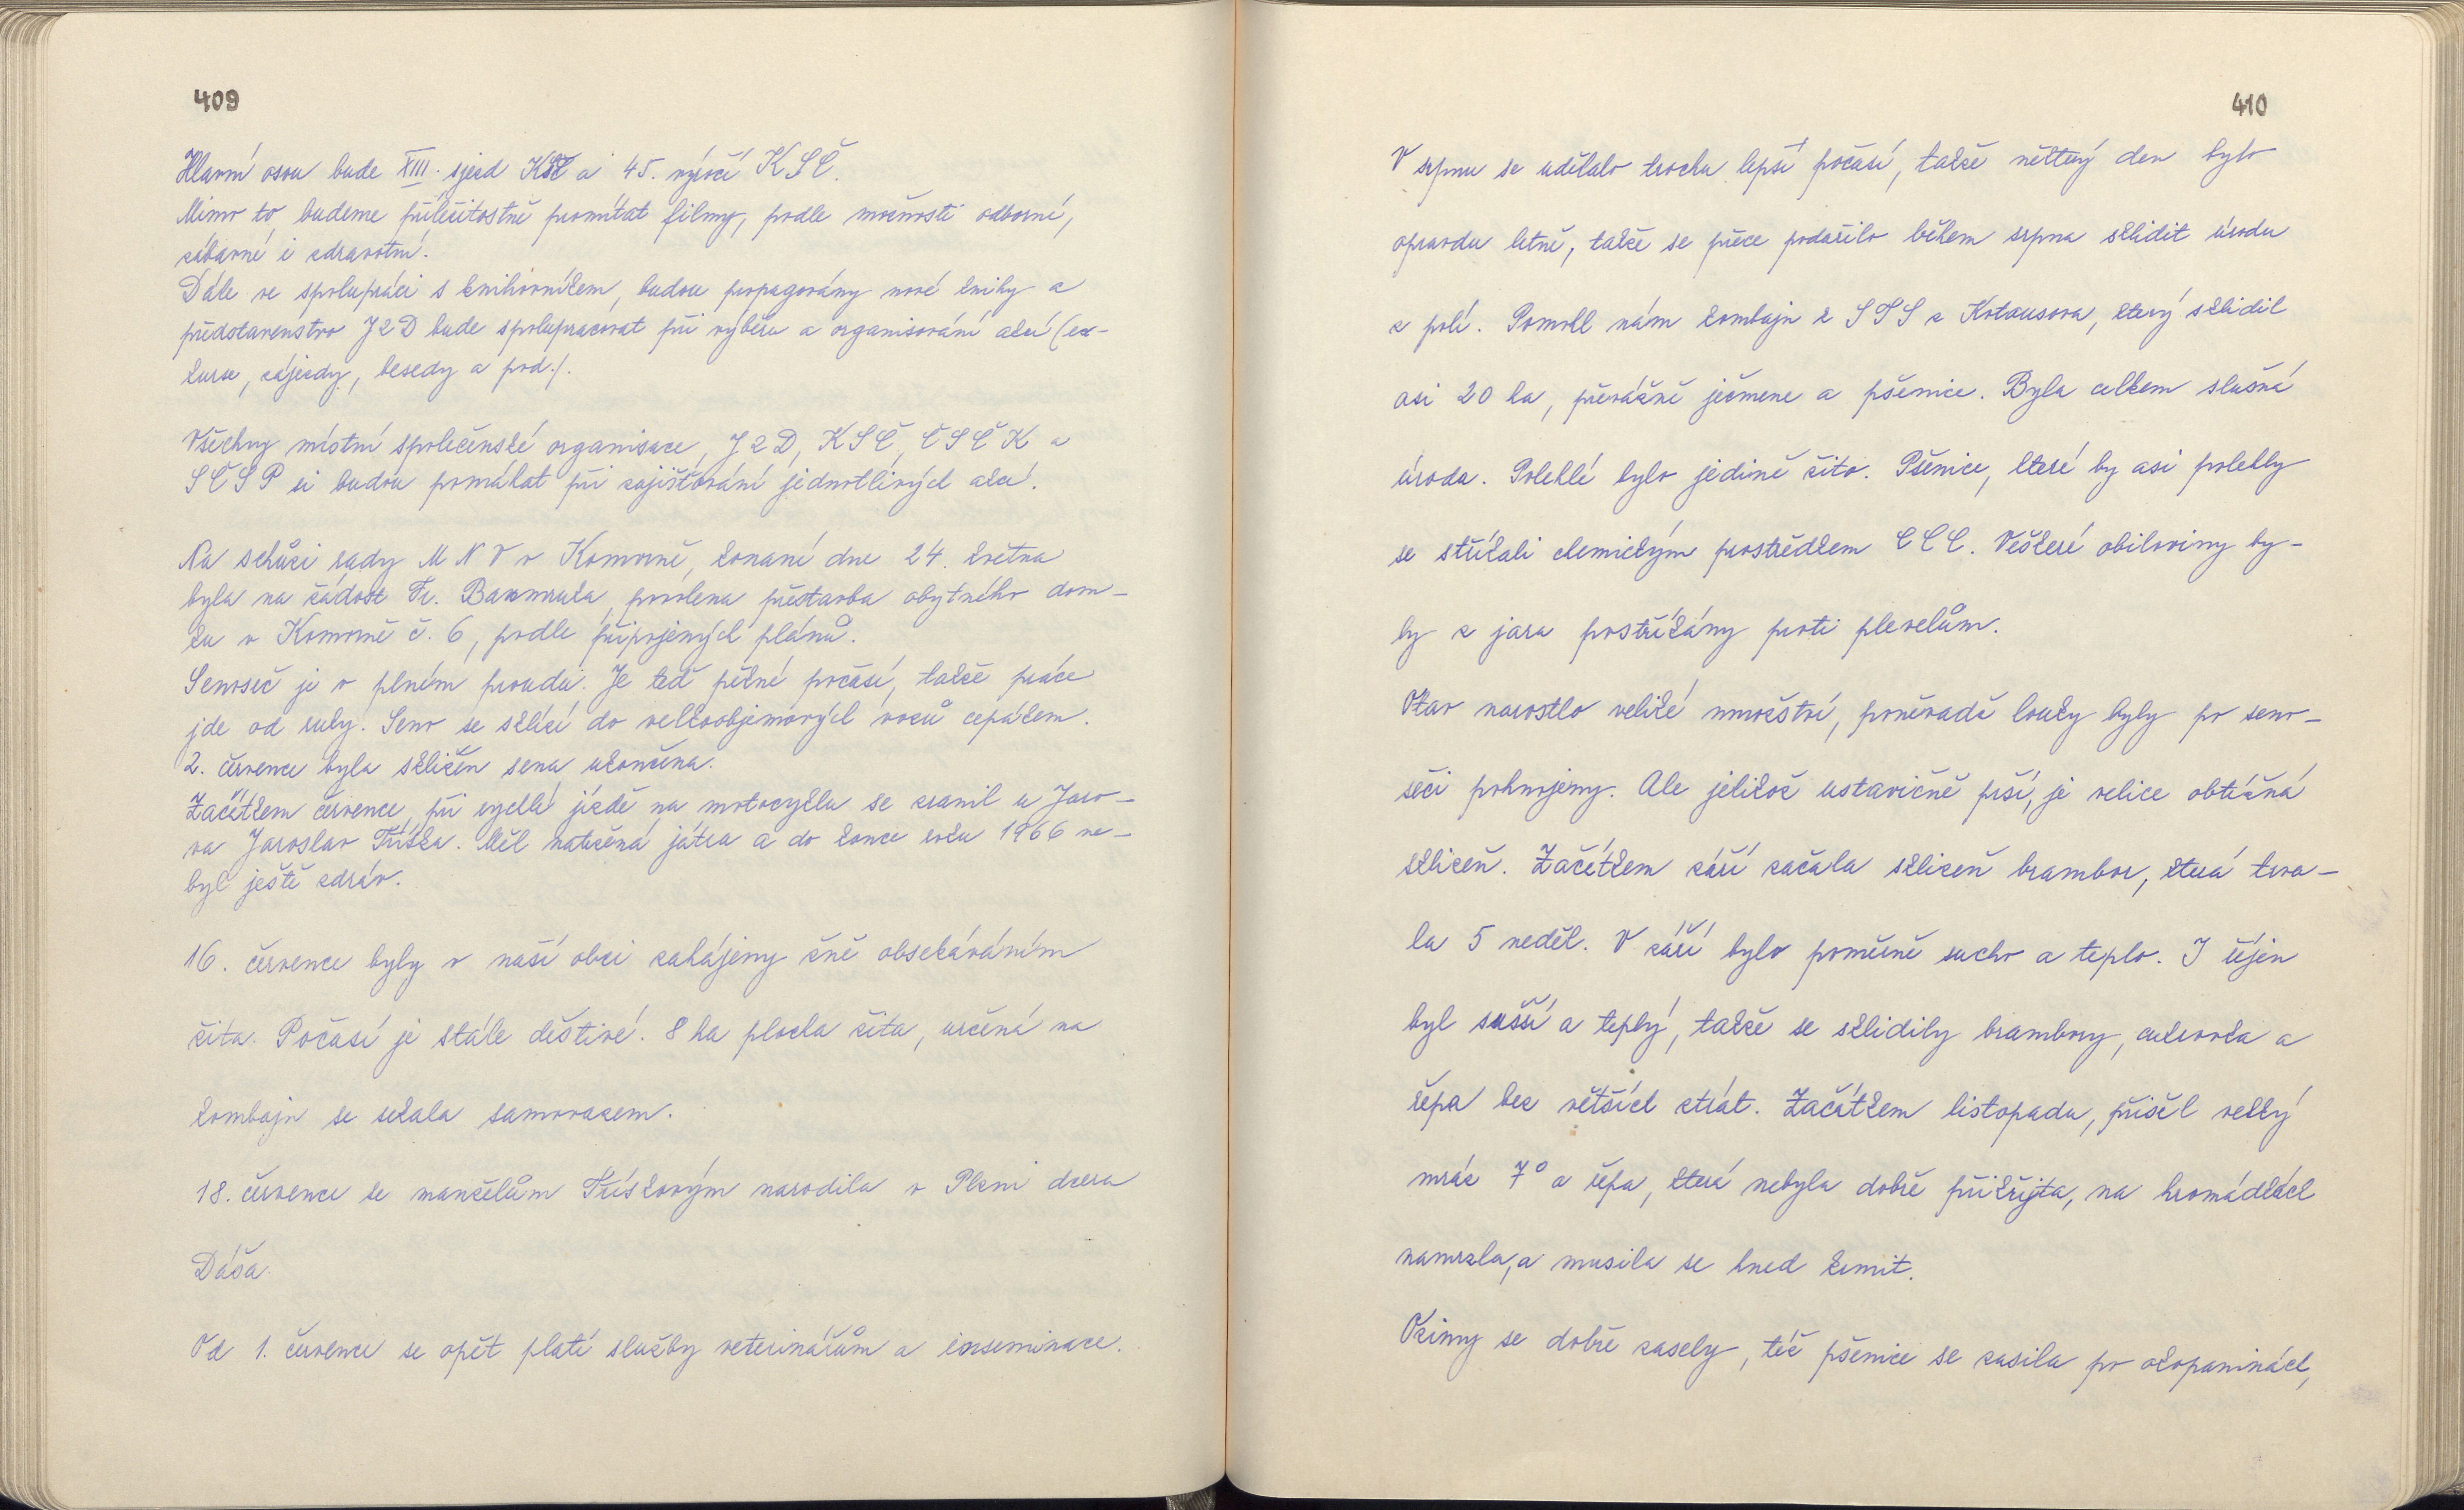 409
Hlavní osou bude XIII. sjezd KSČ a 45. výročí KSČ.
Mimo to, budeme příležitostně promítat filmy, podle možnosti odborné,
zábavné i zdravotní.
Dále ve spolupráci s knihovníkem, budou propagovány nové knihy a
představenstvo JZD bude spolupracovat při výběru a organisování akcí (ex-
kurse, zájezdy, besedy a pod./.
Všechny místní společenské organisace, JZD, KSČ, ČSČK a
SČSP si budou pomáhat při zajišťování jednotlivých akcí.
Na schůzi rady MNV v Komorně, konané dne 24. května
byla na žádost Fr. povolena přestavba obytného dom-
ku v Komorně č. 6, podle připojených plánů.
Senoseč je v plném proudu. Je teď pěkné počasí, takže práce
jde od ruky. Seno se sklízí do velkoobjemových vozů cepákem.
2. července byla sklizeň sena ukončena.
Začátkem července, při rychlé jízdě na motocyklu se zranil u Jaro-
va Jaroslav Tříska. Měl natržená játra a do konce roku 1966 ne-
byl ještě zdráv.
16. července byly v naší obci zahájeny žně obsekáváním
žita. Počasí je stále deštivé. 8 ha plocha žita, určená na
kombajn se sekala samovazem.
18. července se manželům Třískovým narodila v Plzni dcera
Dáša.
Od 1. července se opět platí služby veterinářům a inseminace.
410
V srpnu se udělalo trochu lepší počasí, takže některý den bylo
opravdu letně, takže se přece podařilo během srpna sklidit úrodu
z polí. Pomohl nám kombajn z STS z Kotousova, který sklidil
asi 20 ha, převážně ječmene a pšenice. Byla celkem slušná
úroda. Polehlé bylo jedině žito. Pšenice, které by asi polehly
se stříkali chemickým prostředkem CCC. Veškeré obiloviny by-
ly z jara postříkány proti plevelům.
Otav narostlo veliké množství, poněvadž louky byly po seno-
seči pohnojeny. Ale jelikož ustavičně prší, je velice obtížná
sklizeň. Začátkem září začala sklizeň brambor, která trva-
la 5 neděl. V září bylo poměrně sucho a teplo. I říjen
byl sušší a teplý, takže se sklidily brambory, cukrovka a
řepa bez větších ztrát. Začátkem listopadu, přišel velký
mráz 7° a řepa, která nebyla dobře přikryta, na hromádkách
namrzla, a musila se hned krmit.
Oziny se dobře zasely, též pšenice se zasila po okopaninách,